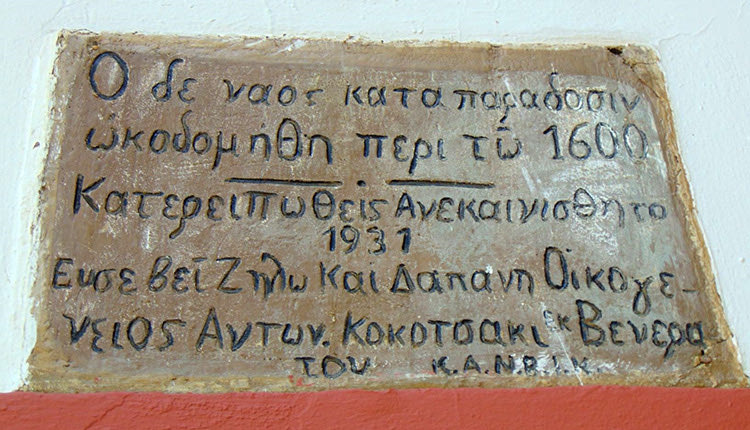 Ο δε ναος κατα παραδοσιν
ὠκοδομήθη περι τῶ 1600
Κατερειπωθεις Ανεκαινισθη το
1931
Ευσεβεῖ Ζηλω Και Δαπανη Οἰκογε-
νειος Αντων. Κοκοτσακι ἐκ Βενερα-
του Κ.Α.Ν.Β.Ι.Κ.